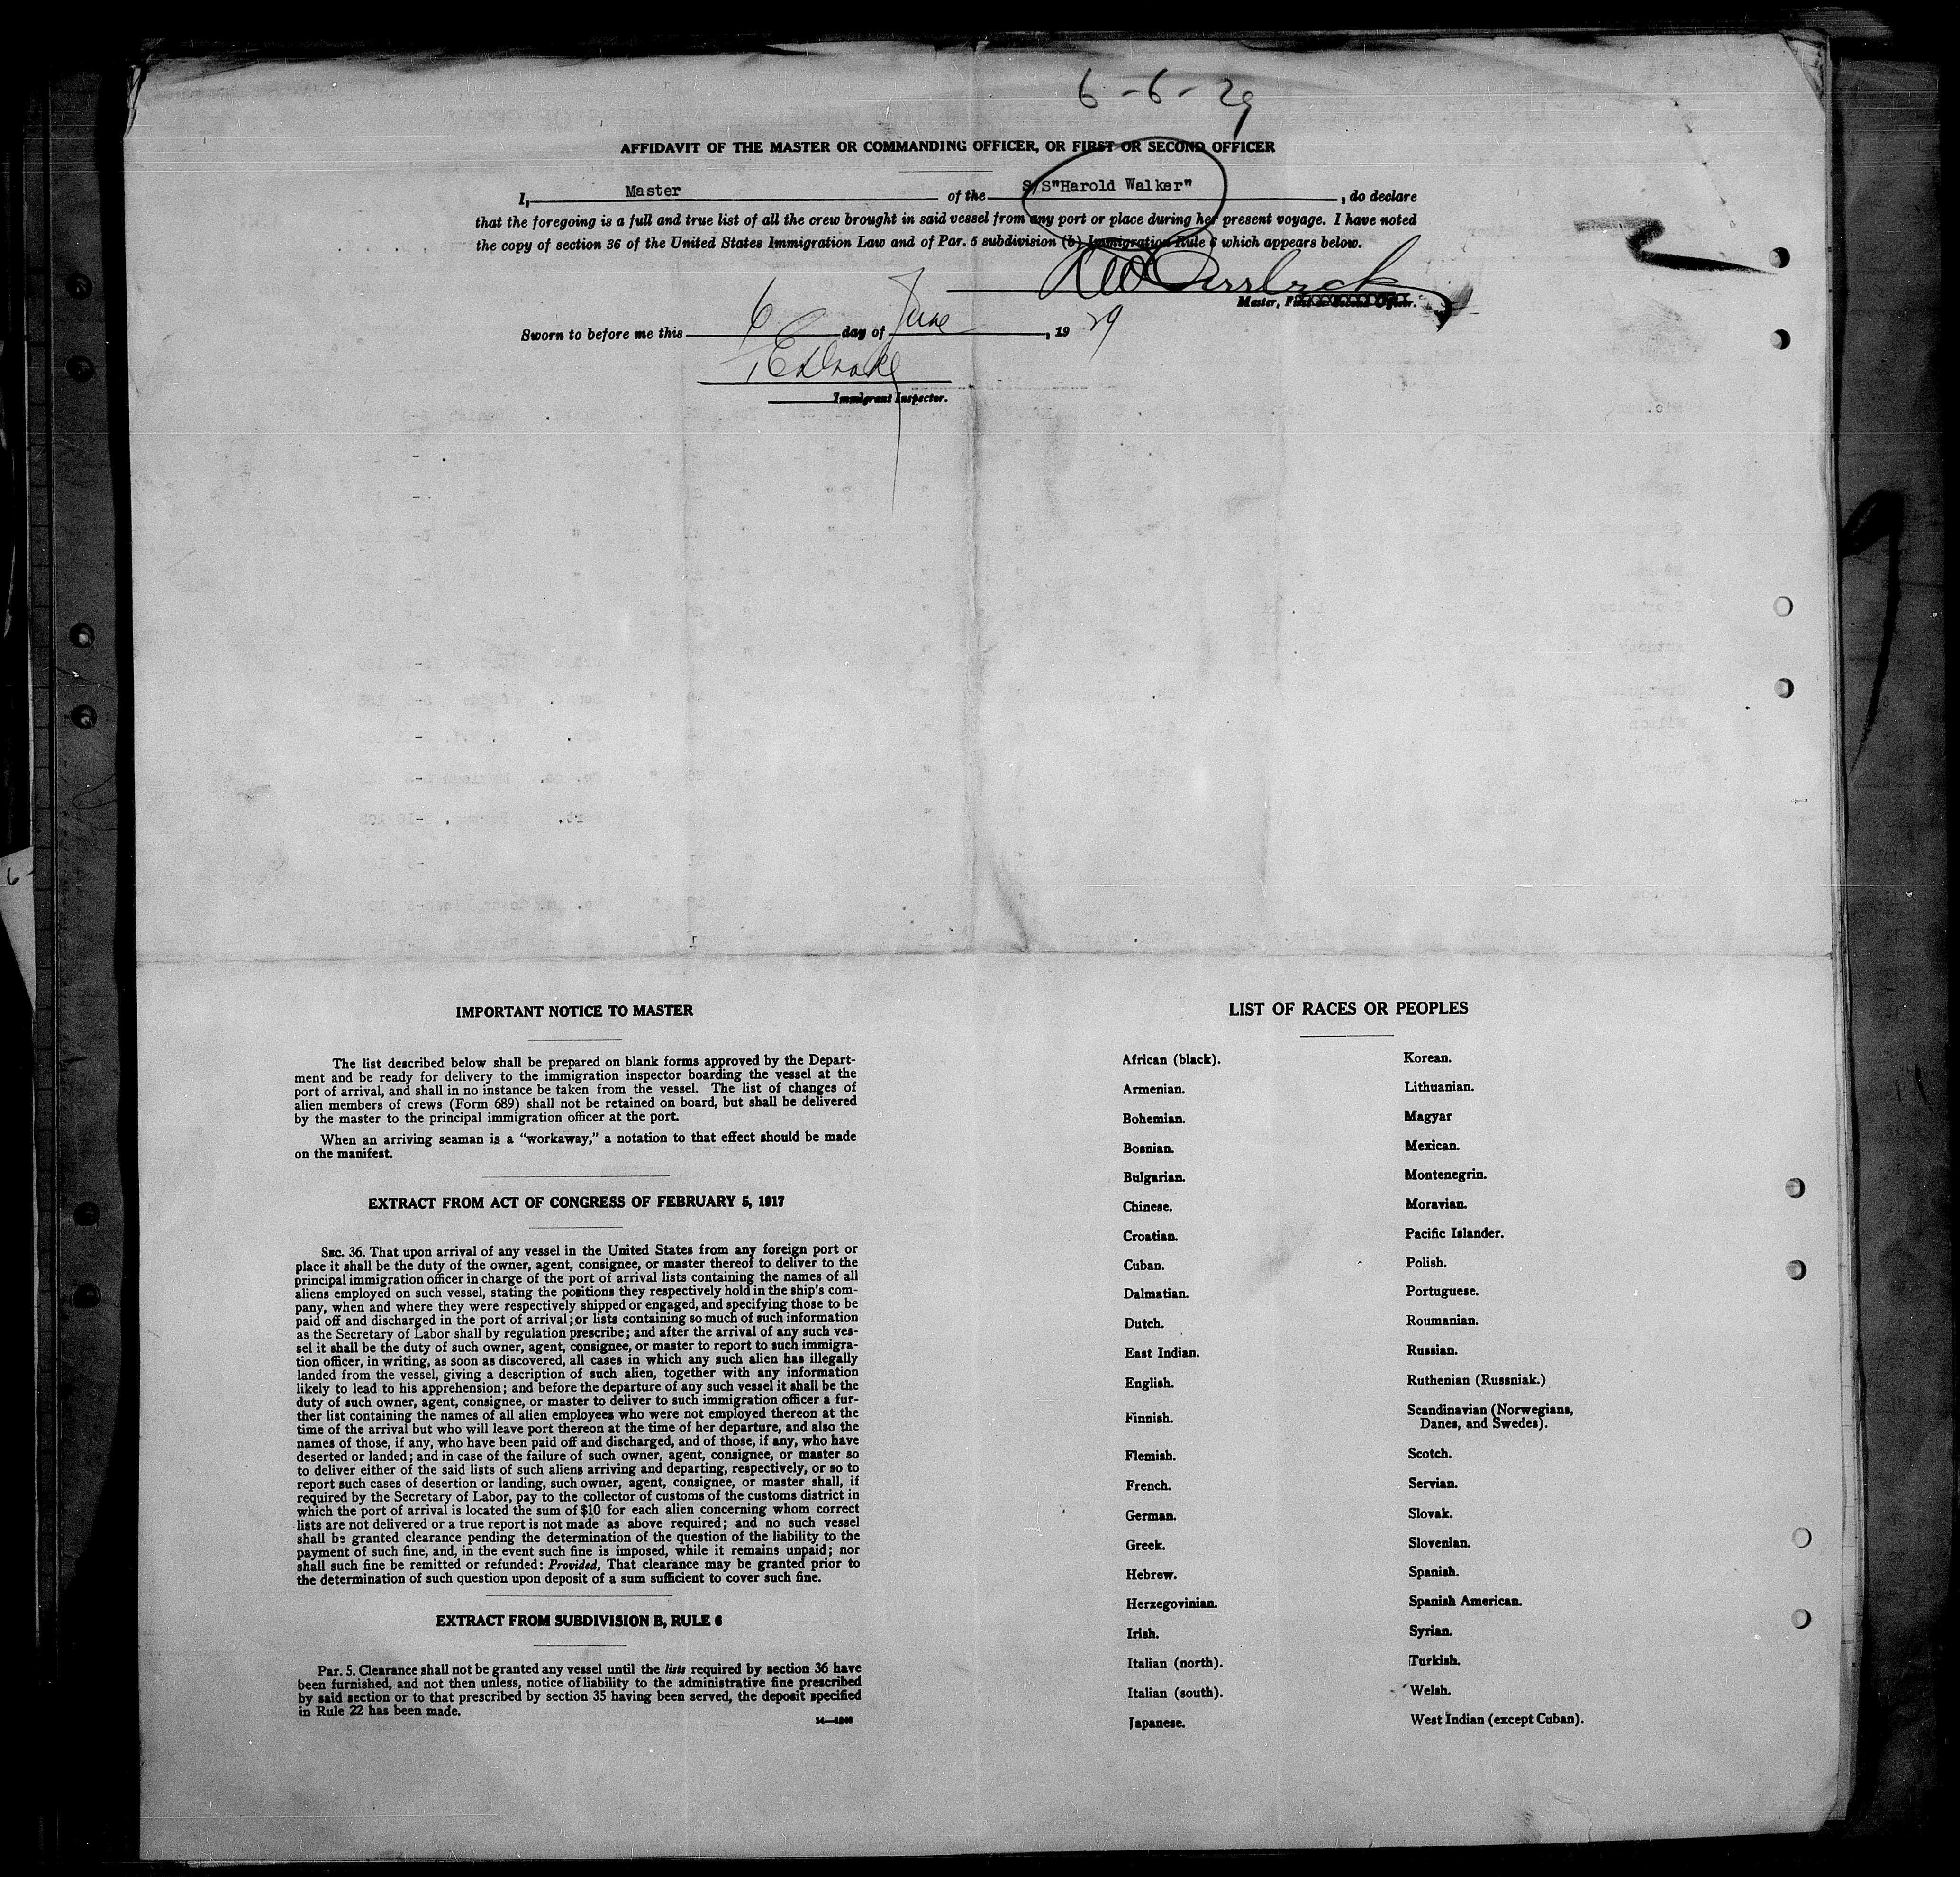 6-6-29
AFFIDAVIT OF THE MASTER OR COMMANDING OFFICER, OR FIRST OR SECOND OFFICER
I, Master of the S/S"Harold Walker", do declare
that the foregoing is a full and true list of all the crew brought in said vessel from any port or place during her present voyage. I have noted
the copy of section 36 of the United States Immigration Law and of Par. 5 subdivision (b) Immigration Rule 6 which appears below.
Master, First or Second Officer.
Sworn to before me this 6 day of June, 1929
Drake
Immigrant Inspector.
IMPORTANT NOTICE TO MASTER
The list described below shall be prepared on blank forms approved by the Depart-
ment and be ready for delivery to the immigration inspector boarding the vessel at the
port of arrival, and shall in no instance be taken from the vessel. The list of changes of
alien members of crews (Form 689) shall not be retained on board, but shall be delivered
by the master to the principal immigration officer at the port.
When an arriving seaman is a "workaway," a notation to that effect should be made
on the manifest.
EXTRACT FROM ACT OF CONGRESS OF FEBRUARY 5, 1917
SEC. 36. That upon arrival of any vessel in the United States from any foreign port or
place it shall be the duty of the owner, agent, consignee, or master thereof to deliver to the
principal immigration officer in charge of the port of arrival lists containing the names of all
aliens employed on such vessel, stating the positions they respectively hold in the ship's com-
pany, when and where they were respectively shipped or engaged, and specifying those to be
paid off and discharged in the port of arrival; or lists containing so much of such information
as the Secretary of Labor shall by regulation prescribe; and after the arrival of any such ves-
sel it shall be the duty of such owner, agent, consignee, or master to report to such immigra-
tion officer, in writing, as soon as discovered, all cases in which any such alien has illegally
landed from the vessel, giving a description of such alien, together with any information
likely to lead to his apprehension; and before the departure of any such vessel it shall be the
duty of such owner, agent, consignee, or master to deliver to such immigration officer a fur-
ther list containing the names of all alien employees who were not employed thereon at the
time of the arrival but who will leave port thereon at the time of her departure, and also the
names of those, if any, who have been paid off and discharged, and of those, if any, who have
deserted or landed; and in case of the failure of such owner, agent, consignee, or master so
to deliver either of the said lists of such aliens arriving and departing, respectively, or so to
report such cases of desertion or landing, such owner, agent, consignee, or master shall, if
required by the Secretary of Labor, pay to the collector of customs of the customs district in
which the port of arrival is located the sum of $10 for each alien concerning whom correct
lists are not delivered or a true report is not made as above required; and no such vessel
shall be granted clearance pending the determination of the question of the liability to the
payment of such fine, and, in the event such fine is imposed, while it remains unpaid; nor
shall such fine be remitted or refunded: Provided, That clearance may be granted prior to
the determination of such question upon deposit of a sum sufficient to cover such fine.
EXTRACT FROM SUBDIVISION B, RULE 6
Par. 5. Clearance shall not be granted any vessel until the lists required by section 36 have
been furnished, and not then unless, notice of liability to the administrative fine prescribed
by said section or to that prescribed by section 35 having been served, the deposit specified
in Rule 22 has been made.
LIST OF RACES OR PEOPLES
African (black).
Armenian.
Bohemian.
Bosnian.
Bulgarian.
Chinese.
Croatian.
Cuban.
Dalmatian.
Dutch.
East Indian.
English.
Finnish.
Flemish.
French.
German.
Greek.
Hebrew.
Herzegovinian.
Irish.
Italian (north).
Italian (south).
Japanese.
Korean.
Lithuanian.
Magyar
Mexican.
Montenegrin.
Moravian.
Pacific Islander.
Polish.
Portuguese.
Roumanian.
Russian.
Ruthenian (Russniak.)
Scandinavian (Norwegians,
Danes, and Swedes).
Scotch.
Servian.
Slovak.
Slovenian.
Spanish.
Spanish American.
Syrian.
Turkish.
Welsh.
West Indian (except Cuban).